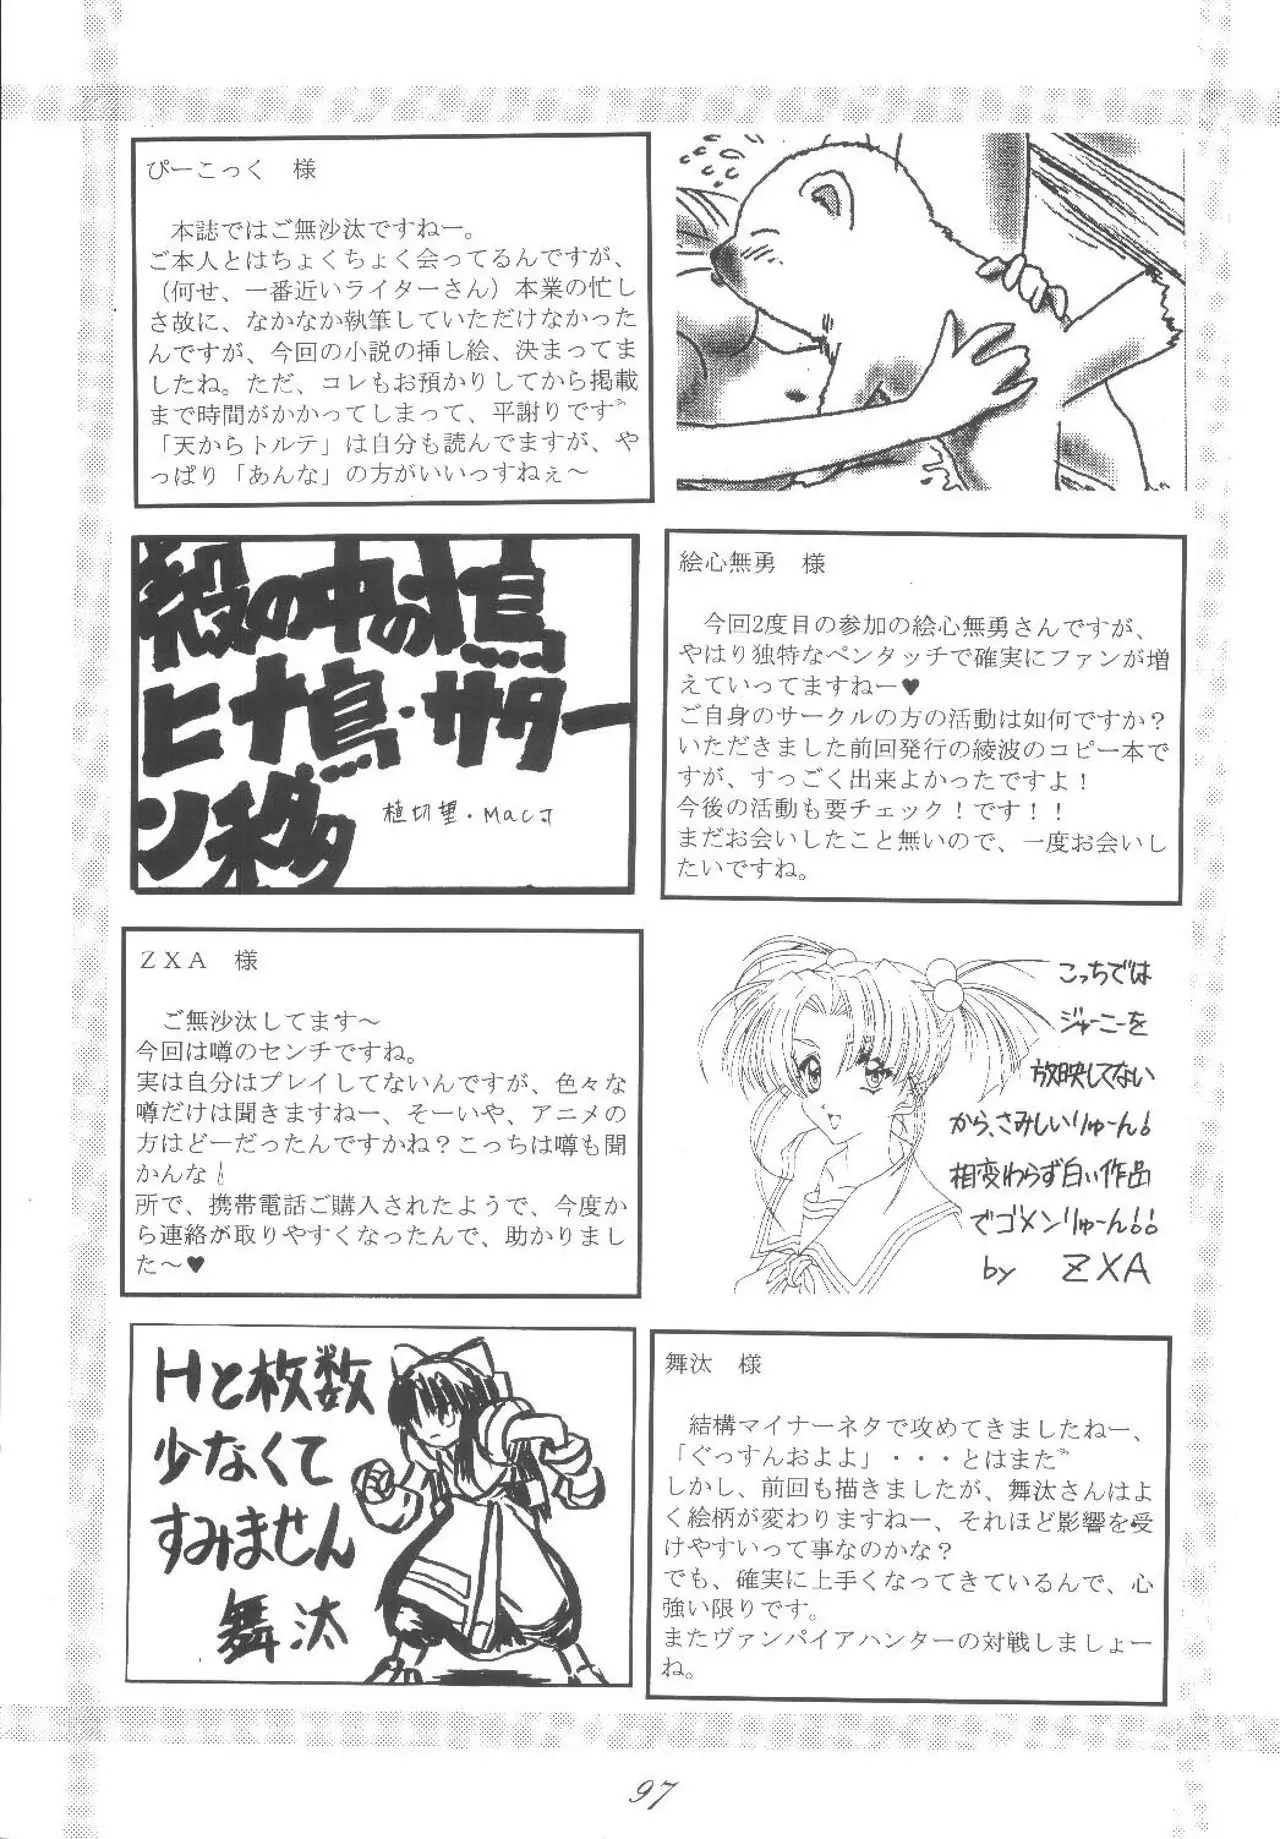 ぴーこっく　様
　本誌ではご無沙汰ですねー。
ご本人とはちょくちょく会ってるんですが、
（何せ、一番近いライターさん）本業の忙し
さ故に、なかなか執筆していただけなかった
んですが、今回の小説の挿し絵、決まってま
したね。ただ、コレもお預かりしてから掲載
まで時間がかかってしまって、平謝りです
「天からトルテ」は自分も読んでますが、や
っぱり「あんな」の方がいいっすねぇ～
殻の中の
ヒナ鳥・サター
ン移
植切望・MacJ
絵心無勇　様
　今回2度目の参加の絵心無勇さんですが、
やはり独特なペンタッチで確実にファンが増
えていってますねー♥
ご自身のサークルの方の活動は如何ですか？
いただきました前回発行の綾波のコピー本で
すが、すっごく出来よかったですよ！
今後の活動も要チェック！です！！
まだお会いしたこと無いので、一度お会いし
たいですね。
ＺＸＡ　様
　ご無沙汰してます～
今回は噂のセンチですね。
実は自分はプレイしてないんですが、色々な
噂だけは聞きますねー、そーいや、アニメの
方はどーだったんですかね？こっちは噂も聞
かんな！
所で、携帯電話ご購入されたようで、今度か
ら連絡が取りやすくなったんで、助かりまし
た～♥
こっちでは
ジャーニーを
放映してない
から、さみしいりゅーん！
相変わらず白い作品
でゴメンりゅーん！！
by ZXA
Hと枚数
少なくて
すみません
舞汰
舞汰　様
　結構マイナーネタで攻めてきましたねー、
「ぐっすんおよよ」・・・とはまた
しかし、前回も描きましたが、舞汰さんはよ
く絵柄が変わりますねー、それほど影響を受
けやすいって事なのかな？
でも、確実に上手くなってきているんで、心
強い限りです。
またヴァンパイアハンターの対戦しましょー
ね。
97